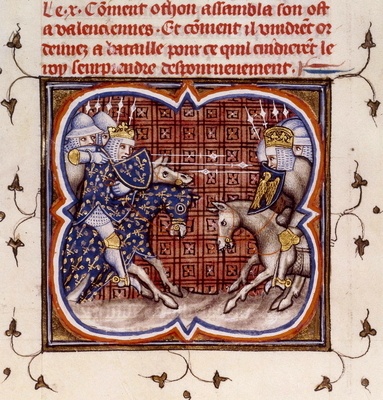 le .x. Coment othon assambla son ost
a valenciennes. Et coment il vindrent or
denez a bataille pour ce quil cuidierent le
roy seurprendre desconveuement.